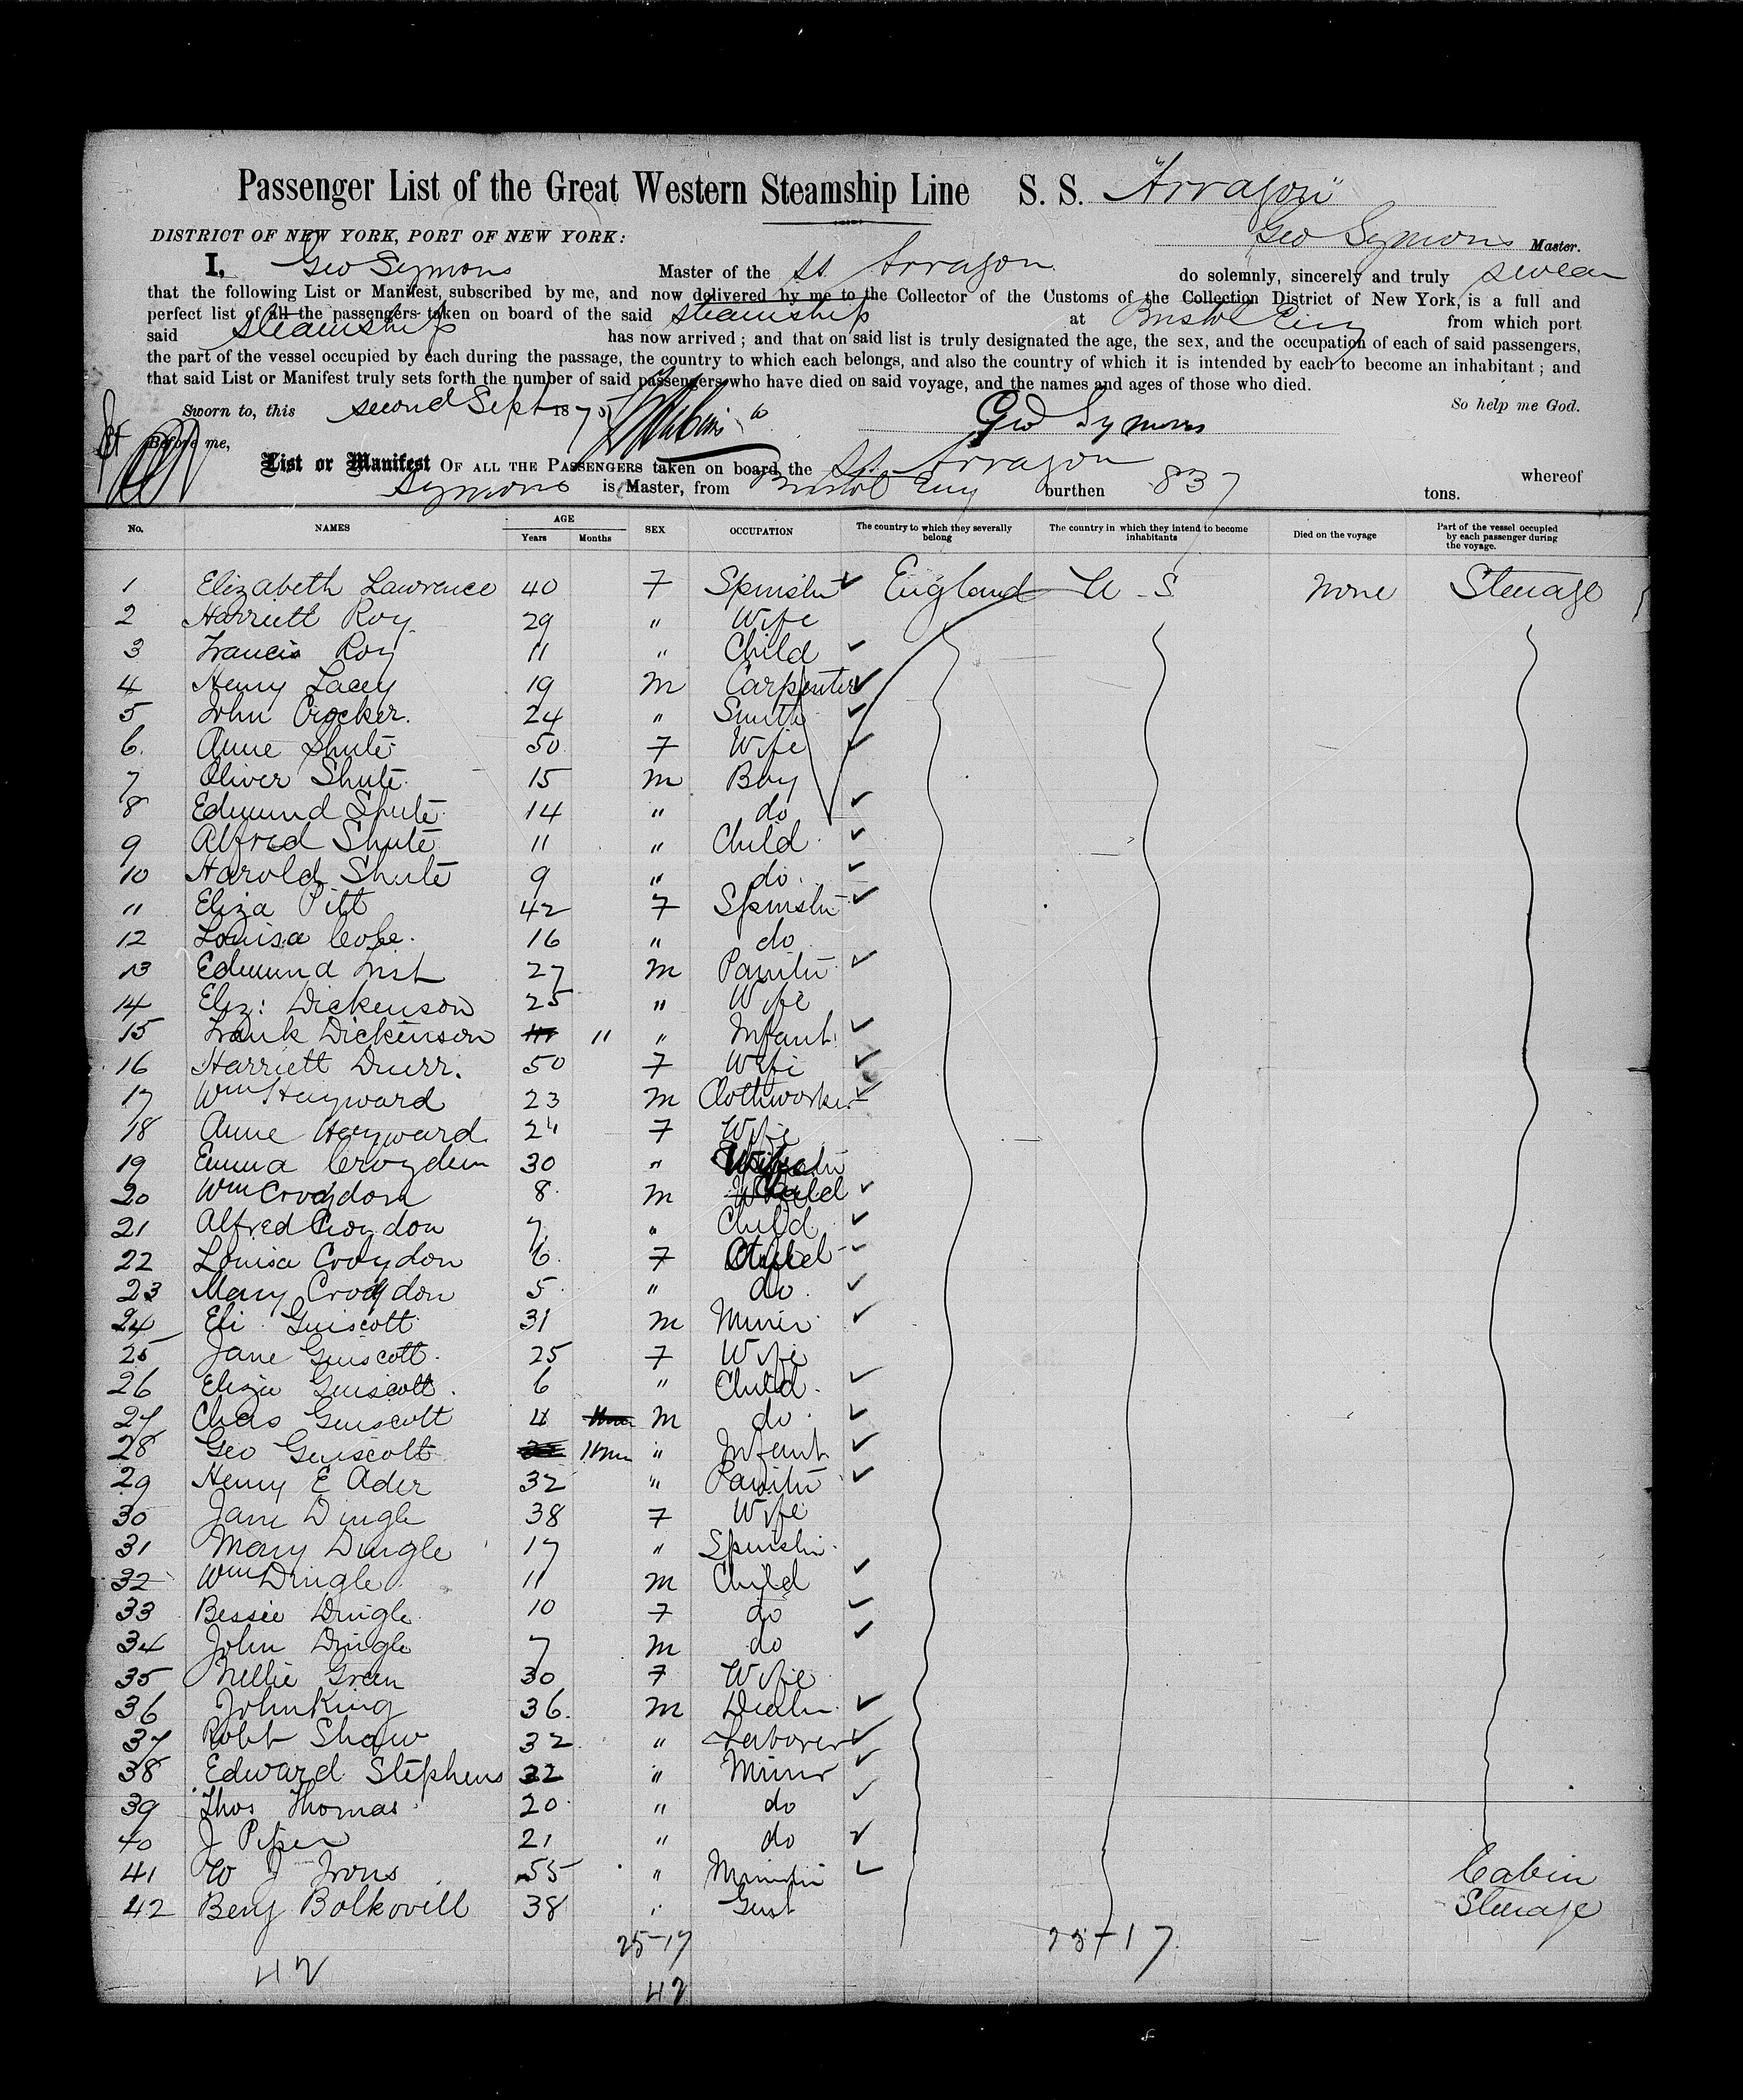 Passenger List of the Great Western Steamship Line S. S. "Arragon"
DISTRICT OF NEW YORK, PORT OF NEW YORK: Geo Symons Master.
I, Geo Symons Master of the SS Arragon do solemnly, sincerely and truly swear
that the following List or Manifest, subscribed by me, and now delivered by me to the Collector of the Customs of the Collection District of New York, is a full and
perfect list of all the passengers taken on board of the said Steamship at Bristol Eng from which port
said Steamship has now arrived; and that on said list is truly designated the age, the sex, and the occupation of each of said passengers,
the part of the vessel occupied by each during the passage, the country to which each belongs, and also the country of which it is intended by each to become an inhabitant; and
that said List or Manifest truly sets forth the number of said passengers who have died on said voyage, and the names and ages of those who died.
Sworn to, this second Sept 1875 So help me God.
Before me, Geo Symons
List or Manifest OF ALL THE PASSENGERS taken on board the SS. Arragon whereof
Symons is Master, from Bristol Eng burthen 837 tons.
No. NAMES AGE Years Months SEX OCCUPATION The country to which they severally belong The country in which they intend to become inhabitants Died on the voyage Part of the vessel occupied by each passenger during the voyage.
1 Elizabeth Lawrence 40 F Spinster England U. S None Steerage
2 Harriett Roy 29 " Wife
3 Francis Roy 11 " Child
4 Henry Lacey 19 M Carpenter
5 John Crocker. 24 " Smith
6. Anne Shute 50 F Wife
7 Oliver Shute 15 M Boy
8 Edmund Shute 14 " do
9 Alfred Shute 11 " Child
10 Harold Shute 9 " do.
11 Eliza Pitt 42 F Spinster
12 Louisa Cope. 16 " do
13 Edmund 27 M Painter
14 Eliz: Dickenson 25 " Wife
15 Frank Dickenson 11 " Infant
16 Harriett Durr. 50 F Wife
17 Wm Hayward 23 M Clothworker
18 Anne Hayward 24 F Wife
19 Emma Croydon 30 "
20 Wm Croydon 8 M Child
21 Alfred Croydon 7 " Child
22 Louisa Croydon 6 F Child
23 Mary Croydon 5 " do
24 Eli Guiscott 31 M Miner
25 Jane Guiscott 25 F Wife
26 Eliza Guiscott. 6 " Child.
27 Chas Guiscott 4 M do
28 Geo Guiscott 11 mos " Infant
29 Henry E Ader 32 " Painter
30 Jane Dingle 38 F Wife
31 Mary Dingle 17 " Spinster
32 Wm Dingle 11 M Child
33 Bessie Dingle 10 F do
34 John Dingle 7 M do
35 Nellie Green 30 F Wife
36 John King 36. M Dealer
37 Robt Shaw 32 " Laborer
38 Edward Stephens 32 " Miner
39 Thos Thomas 20 " do
40 J Piper 21 " do
41 W J Irons 55 " Minister Cabin
42 Benj Bolkovill 38 " Gent Steerage
25-17 25+17
42 42